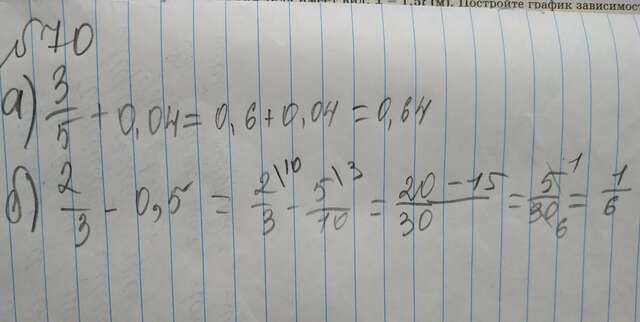 1,5t (м). Постройте график зависимост
№70
а) 3/5 + 0,04 = 0,6 + 0,04 = 0,64
б) 2/3 - 0,5 = 2\10/3 - 5\3/10 = 20-15/30 = 5 1/30 6 = 1/6